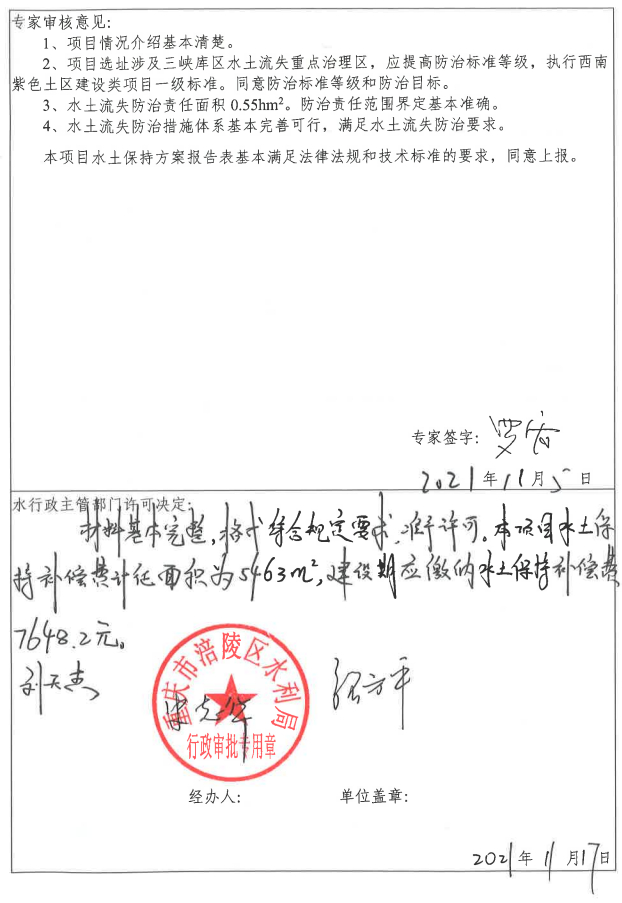 专家审核意见：
1、项目情况介绍基本清楚。
2、项目选址涉及三峡库区水土流失重点治理区，应提高防治标准等级，执行西南
紫色土区建设类项目一级标准。同意防治标准等级和防治目标。
3、水土流失防治责任面积 0.55hm²。防治责任范围界定基本准确。
4、水土流失防治措施体系基本完善可行，满足水土流失防治要求。
本项目水土保持方案报告表基本满足法律法规和技术标准的要求，同意上报。
专家签字：
2021 年 11 月 5 日
水行政主管部门许可决定：
材料基本完整，格式符合规定要求，准予许可。本项目水土保
持补偿费计征面积为5463m²，建设期应缴纳水土保持补偿费
7648.2元。
重庆市涪陵区水利局
行政审批专用章
经办人： 单位盖章：
2021 年 11 月 17 日